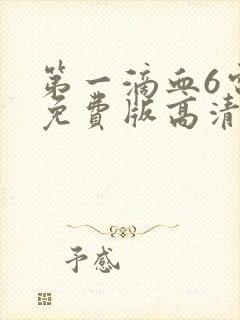 第一滴血6
免费版高清
予感